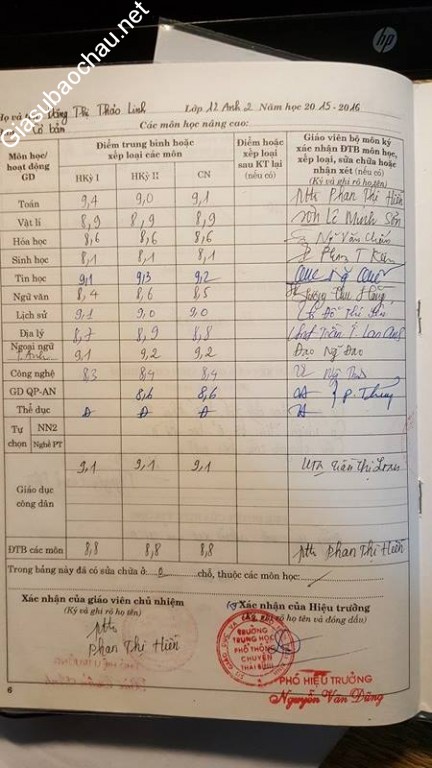 Giasubaochau.net
hp
Họ và tên Đồng Thị Thảo Linh Lớp 12 Anh 2 Năm học 2015 - 2016
Cơ bản Các môn học nâng cao:
Môn học/ hoạt động GD Điểm trung bình hoặc xếp loại các môn Điểm hoặc xếp loại sau KT lại (nếu có) Giáo viên bộ môn ký xác nhận ĐTB môn học, xếp loại, sửa chữa hoặc nhận xét (nếu có) (Ký và ghi rõ họ tên)
HKỳ I HKỳ II CN
Toán 9,4 9,0 9,1 Phan Thị Hiền
Vật lí 8,9 8,9 8,9 Lê Minh Sơn
Hóa học 8,6 8,6 8,6 Ng Văn
Sinh học 8,1 8,1 8,1 T
Tin học 9,1 9,3 9,2
Ngữ văn 8,4 8,6 8,5
Lịch sử 9,1 9,0 9,0 Đỗ Thị
Địa lý 8,7 8,9 8,8 Trần T Lan Anh
Ngoại ngữ T.Anh 9,1 9,2 9,2 Đao Ng Đao
Công nghệ 8,3 8,4 8,4
GD QP-AN 8,6 8,6
Thể dục Đ Đ Đ
Tự chọn NN2
Nghề PT
Giáo dục công dân 9,1 9,1 9,1 Trần Thị
ĐTB các môn 8,8 8,8 8,8 Phan Thị Hiền
Trong bảng này đã có sửa chữa ở 0 chỗ, thuộc các môn học: /
Xác nhận của giáo viên chủ nhiệm
(Ký và ghi rõ họ tên)
Phan Thị Hiền
Xác nhận của Hiệu trưởng
(Ký, ghi rõ họ tên và đóng dấu)
TRƯỜNG
TRUNG HỌC
PHỔ THÔNG
CHUYÊN
THÁI BÌNH
PHÓ HIỆU TRƯỞNG
Nguyễn Văn Dũng
6